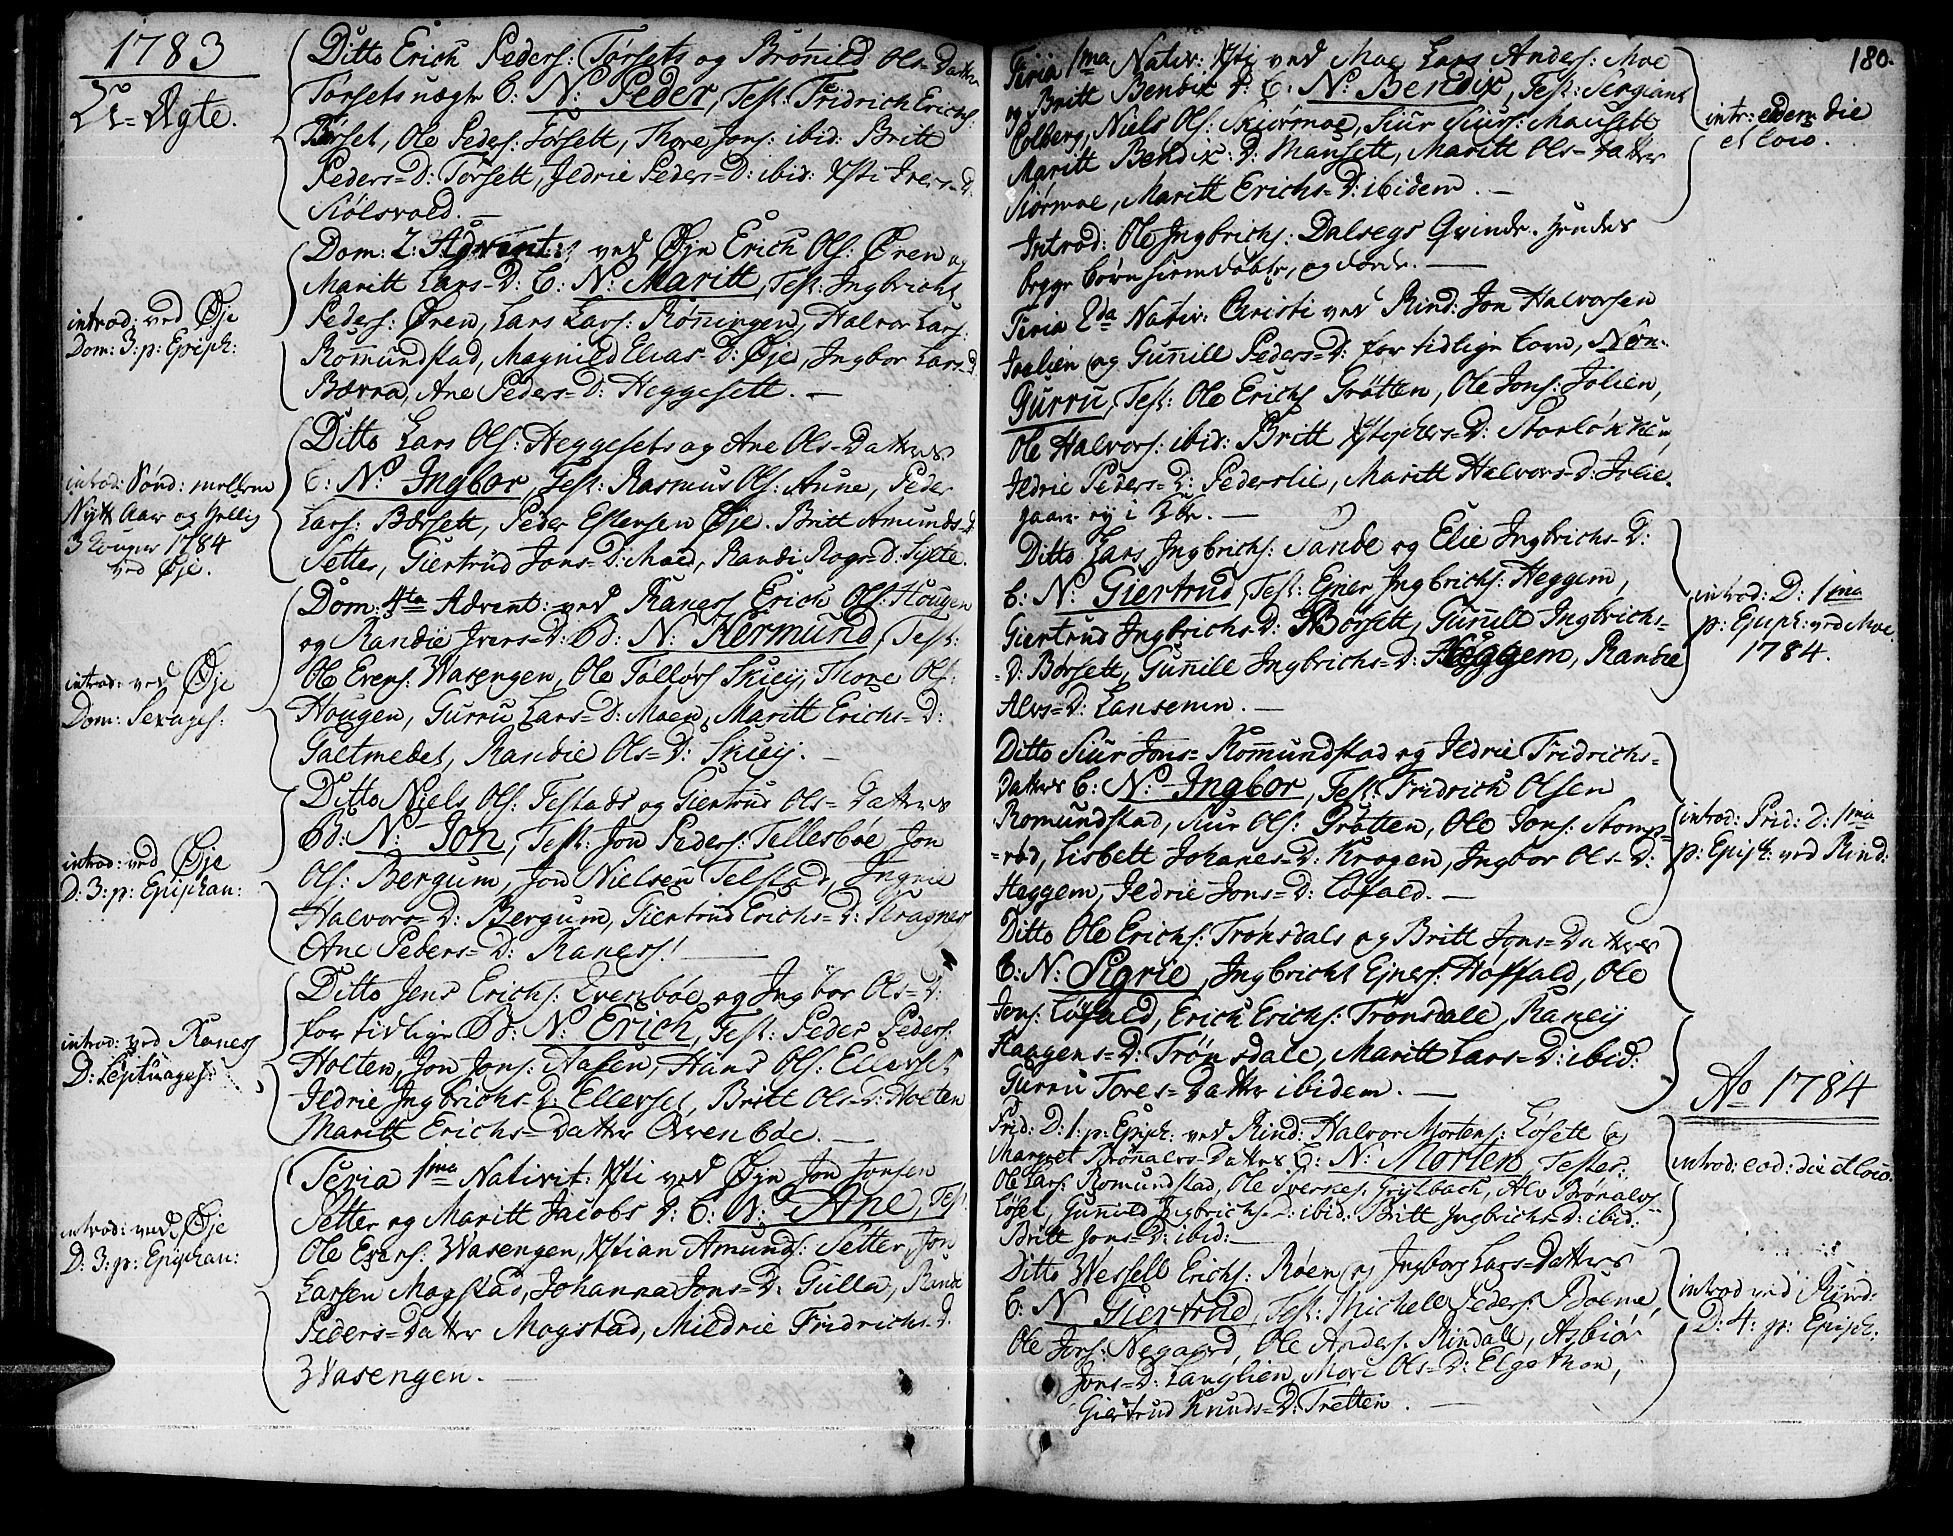 1783
U-Ægte.
Ditto Erich Peders: Tørsets og Brønild Ols-Datter
Tørsets uægte B: N: Peder, Test: Fridrich Erichs:
Tørset, Ole Peders: Tørsett, Thore Jons: ibid: Britt
Peders=D: Tørsett, Jldrie Peders=D: ibid: Xsti Ivers=D:
Siølsvold.
Dom: 2: Advent: ved Øye Erich Ols: Øren og
Maritt Lars=D: B: N: Maritt, Test: Ingbricht
Peders: Øren, Lars Lars: Rønningen, Halvor Lars:
Romundstad, Magnild Elias=D: Øje, Ingbor Lars=D:
Bævra, Ane Peders=D: Heggesett.
introd: ved Øje
Dom: 3: p: Epiph:
Ditto Lars Ols: Heggesets og Ane Ols=Datters
B: N: Ingbor, Test: Rasmus Ols: Aune, Peder
Lars: Bærsett, Peder Estensen Øje. Britt Amunds=D:
Setter, Giertrud Jons=D: Moed, Randi Roars=D: Sylte.
introd: Sønd: mellem
Nytt Aar og hellig
3 Konger 1784
ved Øje.
Dom: 4ta Advent: ved Raness Erich Ols: Hougen
og Randie Ivers=D: Bd: N: Hermund, Test:
Ole Evens: Wasengen, Ole Tollørs Skieij, Thore Ols:
Hougen, Gurru Lars=D: Moen, Maritt Erichs=D:
Galtmedet, Randie Ols=D: Skieij.
introd: ved Øje
Dom: Sexages:
Ditto Niels Ols: Testads og Giertrud Ols=Datters
Bd: N: Jon, Test: Jon Peders: Tellesbøe, Jon
Ols: Bergum, Jon Nielsen Telstad, Ingrie
Halvors=D: Bergum, Giertrud Erichs=D: Kragnes
Ane Peders=D: Raness!
introd: ved Øje
D: 3: p: Epiphan:
Ditto Jens Erichs: Qvenbøe og Ingbor Ols=D:
for tidlige Bd: N: Erich, Test: Peder Peders:
Holten, Jon Jons: Aasen, Hans Ols: Ellevset
Jldrie Ingbrichs=D: Ellevset, Britt Ols=D: Holten
Maritt Erichs=Datter Qvenbøe.
introd: ved Raness
D: Septuages:
Feria 1ma Nativit: Xsti ved Øje Jon Jonsen
Setter og Maritt Jacobs D: B: N: Ane, Test:
Ole Evens: Wasengen, Xstian Amunds: Setter, Jon
Larsen Mogstad, Johanna Jons=D: Gulla, Randi
Peders=Datter Mogstad, Mildrie Fridrichs=D:
Wasengen.
introd: ved Øje
D: 3: p: Epiphan:
180.
Feria 1ma Nativ: Xsti ved Moe Lars Anders: Moe
og Britt Bendix D: B: N: Bendix, Test: Sergiant
Colberg, Niels Ols: Skiørmoe, Siur Siurs: Mausett
Maritt Bendix: D: Mausett, Maritt Ols=Datter
Skiørmoe, Maritt Erichs=D: ibidem.
intr: eadem die
et loco.
Introd: Ole Ingbrichs: Dalsegs Qvinde. hendes
begge Børn hiemdøbte, og døde.
Feria 2da Nativ: Christi ved Rind: Jon Halvorsen
Joelien og Gunnill Peders=D: for tidlige Barn, Nom:
Gurru, Test: Ole Erichs Grøtten, Ole Jons: Jolien,
Ole Halvors: ibid: Britt Xstophers=D: Storløkken,
Jldrie Peders=D: Pederslie, Maritt Halvors=D: Jolie.
Ditto Lars Ingbrichs: Sande og Elie Ingbrichs=D:
B: N: Giertrud, Test: Ejner Ingbrichs: Heggem,
Giertrud Ingbrichs=D: Børsett, Gunild Ingbrichs=
=D: Børsett, Gunnill Ingbrichs=D: Heggem, Randie
Alvs=D: Lansemm.
introd: D: 1ma
p: Epiph: ved Moe.
1784.
Ditto Siur Jons= Romundstad og Jldrie Fridrichs=
Datters B: N: Ingbor, Test: Fridrich Olsen
Romundstad, Siur Ols: Grøtten, Ole Jons: Stomp=
=rød, Lisbett Johanes=D: Krogen, Ingbor Ols=D:
Heggem, Jldrie Jons=D: Løfald.
introd: Prid: D: 1ma
p: Epiph: ved Rind:
Ditto Ole Erichs: Trønsdals og Britt Jons=Datters
B: N: Sigrie, Ingbricht Ejners: Hoffald, Ole
Jons: Løfald, Erich Erichs: Trønsdale, Raneij
Haagens=D: Trønsdale, Maritt Lars=D: ibid:
Gurru Tores=Datter ibidem.
Ao 1784
Prid: D: 1: p: Epiph: ved Rind: Halvor Mortens: Løsett og
Margret Brønalvs=Datters B: N: Morten, Testes:
Ole Lars: Romundstad, Ole Sverkes: Grytbach, Alv Brønalvs=
Løset, Gunild Ingbrichs=D: ibid: Britt Ingbrichs=D: ibid:
Britt Jons=D: ibid:
introd: eod: die et loco.
Ditto Wessell Erichs: Røen og Ingborg Lars=Datters
B: N: Giertrud, Test: Michell Peders: Bolme,
Ole Jons: Negaard, Ole Anders: Rindall, Asbiør
Jons=D: Langlien, Mari Ols=D: Elgethon,
Giertrud Knuds=D: Tretten.
introd ved Rind:
D: 4: p: Epiph: